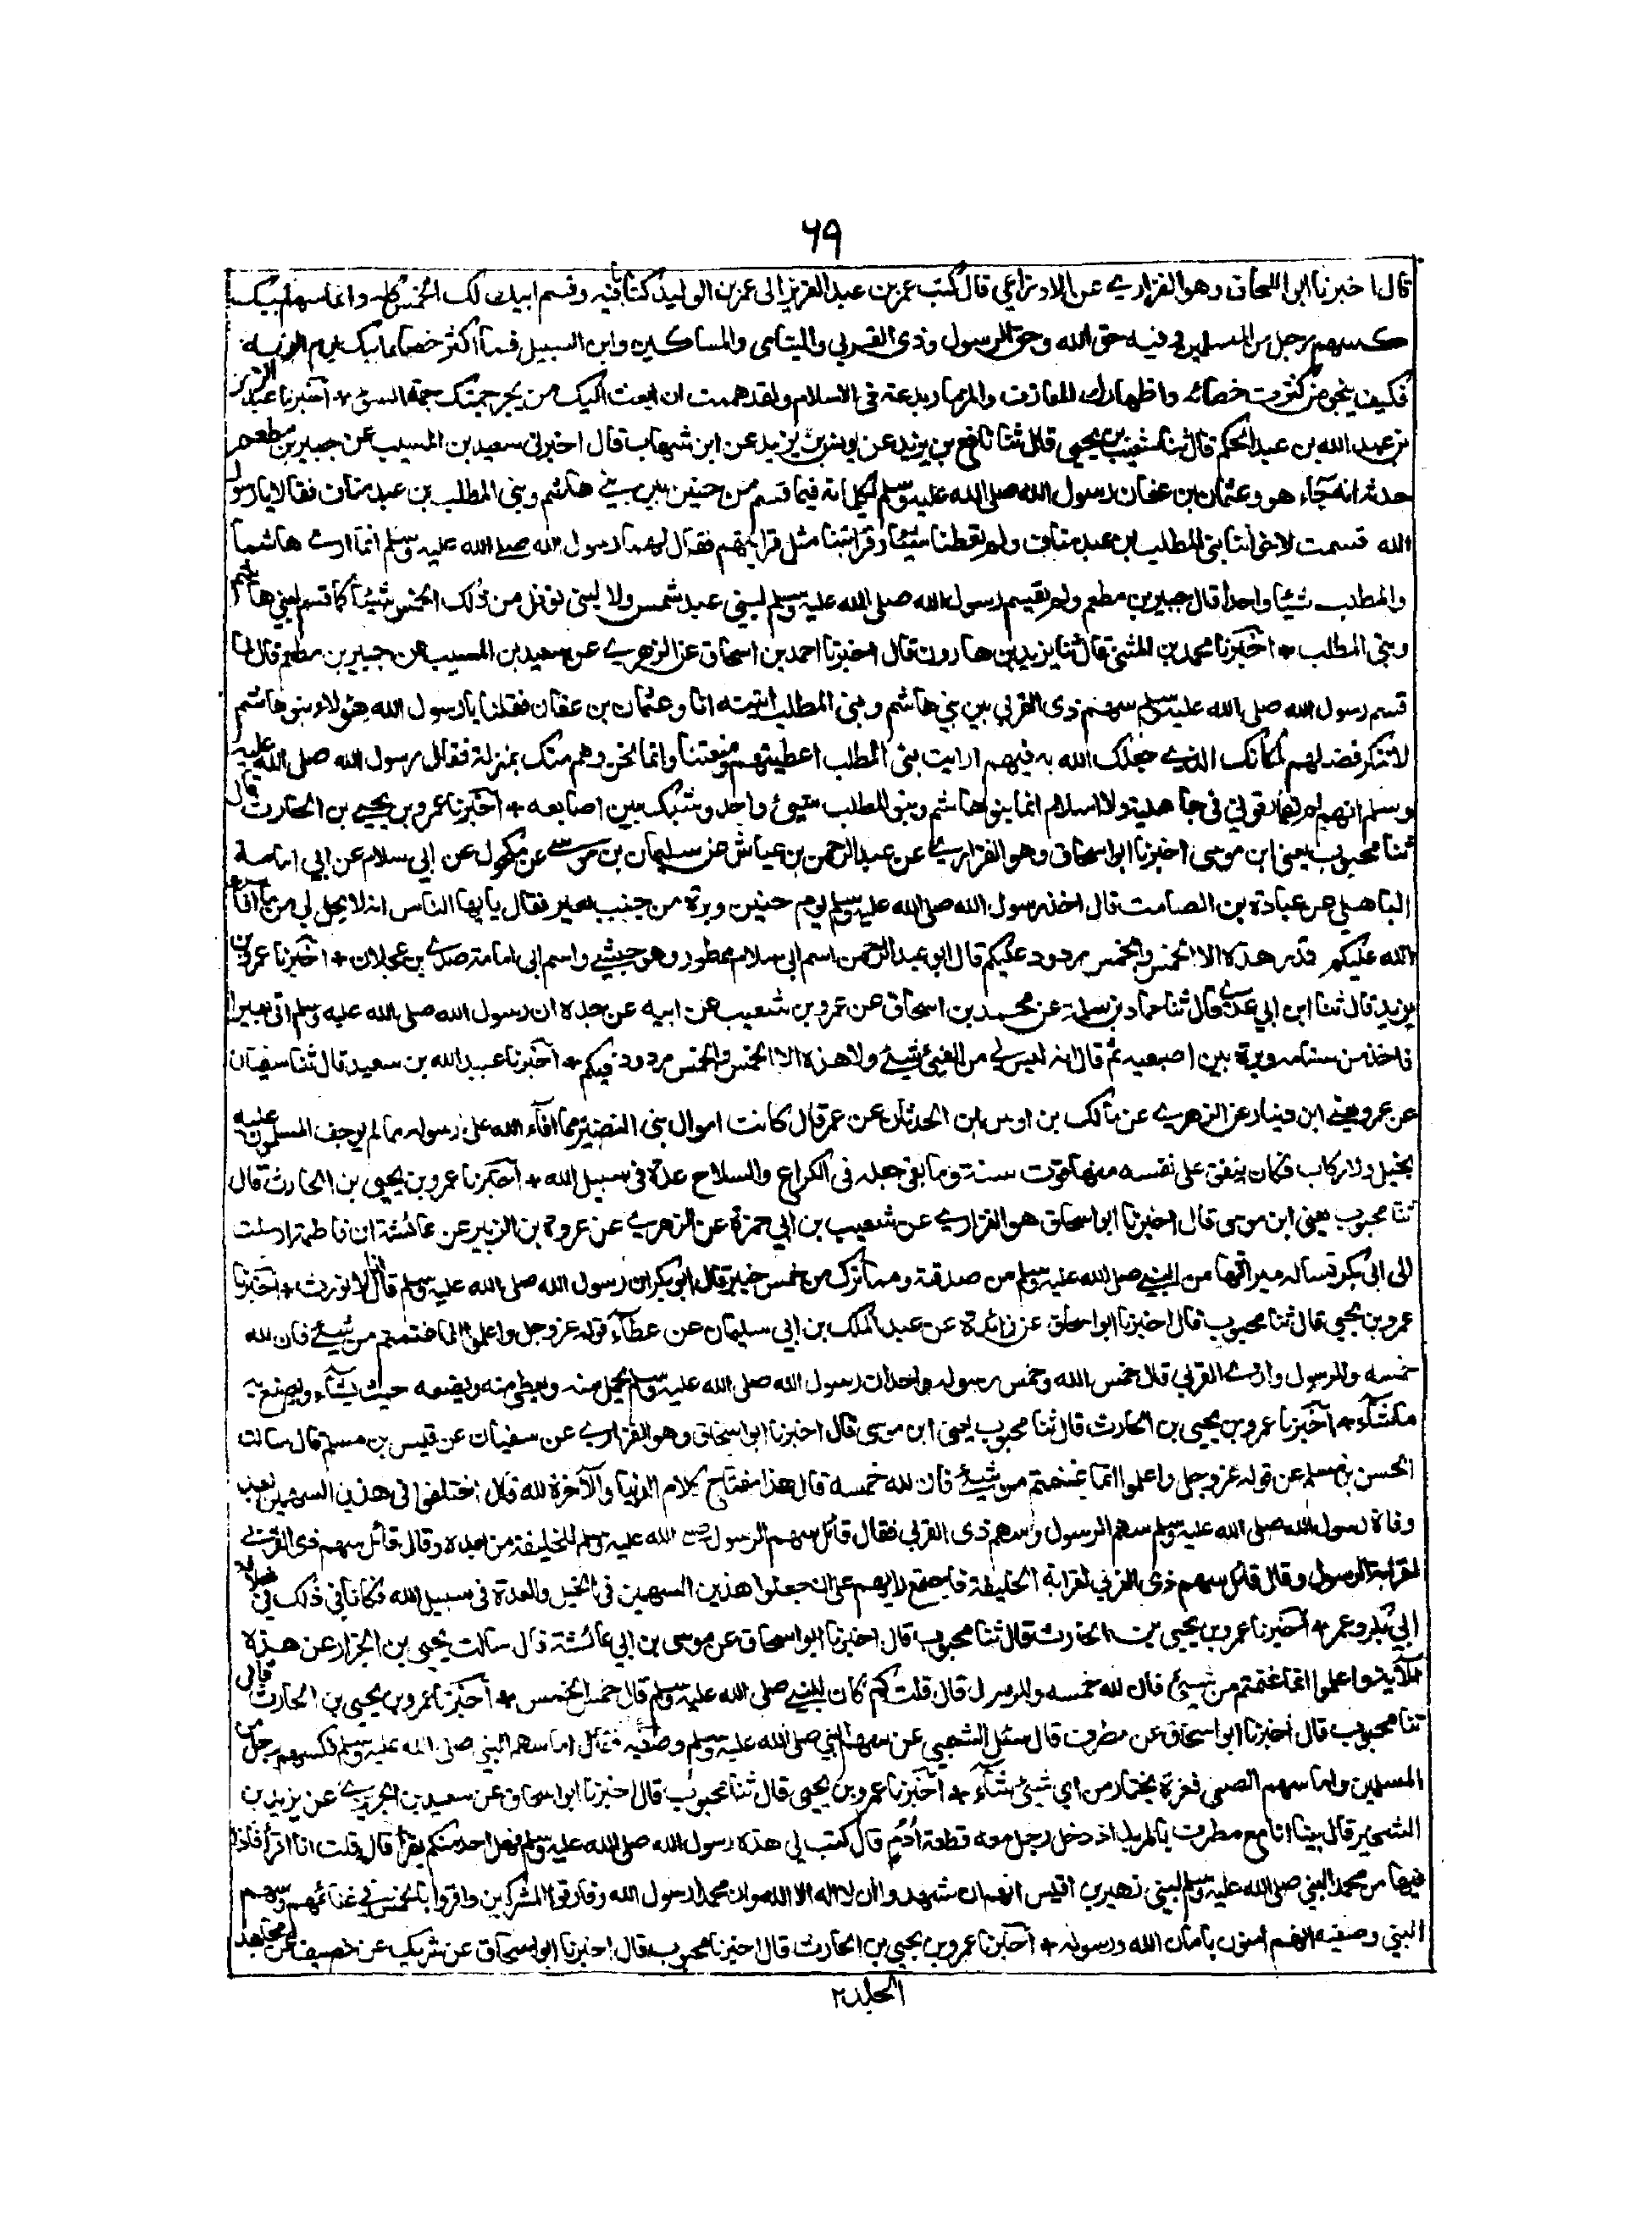 ٦٩
قال اخبرنا ابو اسحاق وهو الفزاري عن الاوزاعي قال كتب عمر بن عبد العزيز الى عمر بن الوليد كتابا فيه وقسم ابيك لك الخمس كله وانما سهم ابيك
كسهم رجل من المسلمين وفيه حق الله وحق الرسول وذي القربي واليتامى والمساكين وابن السبيل فما اكثر خصماء ابيك يوم القيمة
فكيف ينجو من كثرت خصمائه واظهارك المعازف والمزمار بدعة في الاسلام ولقد هممت ان ابعث اليك من يجز جمتك جمة السوء + اخبرنا عبد الرحمن
بن عبد الله بن عبد الحكم قال ثنا شعيب بن يحيى قال ثنا نافع بن يزيد عن يونس بن يزيد عن ابن شهاب قال اخبرني سعيد بن المسيب عن جبير بن مطعم
حدثه انه جاء هو وعثمان بن عفان رسول الله صلى الله عليه وسلم يكلمانه فيما قسم من حنين بين بني هاشم وبني المطلب بن عبد مناف فقالا يا رسول
الله قسمت لاخواننا بني المطلب بن عبد مناف ولم تعطنا شيئا وقرابتنا مثل قرابتهم فقال لهما رسول الله صلى الله عليه وسلم انما ارى هاشما
والمطلب شيئا واحدا قال جبير بن مطعم ولم يقسم رسول الله صلى الله عليه وسلم لبني عبد شمس ولا لبني نوفل من ذلك الخمس شيئا كما قسم لبني هاشم
وبني المطلب + اخبرنا محمد بن المثنى قال ثنا يزيد بن هارون قال اخبرنا احمد بن اسحاق عن الزهري عن سعيد بن المسيب عن جبير بن مطعم قال لما
قسم رسول الله صلى الله عليه وسلم سهم ذي القربي بين بني هاشم وبني المطلب اتيته انا وعثمان بن عفان فقلنا يا رسول الله هؤلاء بنو هاشم
لا ننكر فضلهم لمكانك الذي جعلك الله به فيهم ارايت بني المطلب اعطيتهم ومنعتنا وانما نحن وهم منك بمنزلة فقال رسول الله صلى الله عليه
وسلم انهم لم يفارقوني في جاهلية ولا اسلام انما بنو هاشم وبنو المطلب شيئ واحد وشبك بين اصابعه + اخبرنا عمرو بن يحيى بن الحارث قال
ثنا محبوب يعني ابن موسى اخبرنا ابو اسحاق وهو الفزاري عن عبد الرحمن بن عياش عن سليمان بن موسى عن مكحول عن ابي سلام عن ابي امامة
الباهلي عن عبادة بن الصامت قال اخذ رسول الله صلى الله عليه وسلم يوم حنين وبرة من جنب بعير فقال يا يها الناس انه لا يحل لي مما افاء
الله عليكم قدر هذه الا الخمس والخمس مردود عليكم قال ابو عبد الرحمن اسم ابي سلام ممطور وهو حبشي واسم ابي امامة صدي بن عجلان + اخبرنا عمرو بن
يزيد قال ثنا ابن ابي عدي قال ثنا حماد بن سلمة عن محمد بن اسحاق عن عمرو بن شعيب عن ابيه عن جده ان رسول الله صلى الله عليه وسلم اتى بعيرا
فاخذ من سنامه وبرة بين اصبعيه ثم قال انه ليس لي من الفيئ شيئ ولا هذه الا الخمس والخمس مردود فيكم + اخبرنا عبيد الله بن سعيد قال ثنا سفيان
عن عمرو يعني ابن دينار عن الزهري عن مالك بن اوس بن الحدثان عن عمر قال كانت اموال بني النضير مما افاء الله على رسوله مما لم يوجف المسلمون عليه
بخيل ولا ركاب فكان ينفق على نفسه منها قوت سنة وما بقي جعله في الكراع والسلاح عدة في سبيل الله + اخبرنا عمرو بن يحيى بن الحارث قال
ثنا محبوب يعني ابن موسى قال اخبرنا ابو اسحاق هو الفزاري عن شعيب بن ابي حمزة عن الزهري عن عروة بن الزبير عن عائشة ان فاطمة ارسلت
الى ابي بكر تساله ميراثها من النبي صلى الله عليه وسلم من صدقته ومما ترك من خمس خيبر قال ابو بكر ان رسول الله صلى الله عليه وسلم قال لا نورث + اخبرنا
عمرو بن يحيى قال ثنا محبوب قال اخبرنا ابو اسحاق عن زائدة عن عبد الملك بن ابي سليمان عن عطاء قوله عز وجل واعلموا انما غنمتم من شيئ فان لله
خمسه وللرسول ولذي القربي قال خمس الله وخمس رسوله واحد ان رسول الله صلى الله عليه وسلم يحمل منه ويعطي منه ويضعه حيث يشاء ويصنع به
ما شاء + اخبرنا عمرو بن يحيى بن الحارث قال ثنا محبوب يعني ابن موسى قال اخبرنا ابو اسحاق وهو الفزاري عن سفيان عن قيس بن مسلم قال سالت
الحسن بن مسلم عن قوله عز وجل واعلموا انما غنمتم من شيئ فان لله خمسه قال هذا مفتاح كلام الدنيا والآخرة لله قال اختلفوا في هذين السهمين بعد
وفاة رسول الله صلى الله عليه وسلم سهم الرسول وسهم ذي القربي فقال قائل سهم الرسول صلى الله عليه وسلم للخليفة من بعده وقال قائل سهم ذي القربي
لقرابة الرسول وقال قائل سهم ذي القربي لقرابة الخليفة فاجتمع رايهم على ان جعلوا هذين السهمين في الخيل والعدة في سبيل الله فكانا في ذلك في خلافة
ابي بكر وعمر + اخبرنا عمرو بن يحيى بن الحارث قال ثنا محبوب قال اخبرنا ابو اسحاق عن موسى بن ابي عائشة قال سالت يحيى بن الجزار عن هذه
الآية واعلموا انما غنمتم من شيئ فان لله خمسه وللرسول قال قلت كم كان للنبي صلى الله عليه وسلم قال خمس الخمس + اخبرنا عمرو بن يحيى بن الحارث قال
ثنا محبوب قال اخبرنا ابو اسحاق عن مطرف قال سئل الشعبي عن سهم النبي صلى الله عليه وسلم وصفيه فقال اما سهم النبي صلى الله عليه وسلم فكسهم رجل من
المسلمين واما سهم الصفي فغرة يختار من اي شيئ شاء + اخبرنا عمرو بن يحيى قال ثنا محبوب قال اخبرنا ابو اسحاق عن سعيد بن الجريري عن يزيد بن
الشخير قال بينا انا مع مطرف بالمربد اذ دخل رجل معه قطعة أدُم قال كتب لي هذه رسول الله صلى الله عليه وسلم فهل احد منكم يقرأ قال قلت انا اقرأ فاذا
فيها من محمد النبي صلى الله عليه وسلم لبني زهير بن اقيس انهم ان شهدوا ان لا اله الا الله وان محمدا رسول الله وفارقوا المشركين واقروا بالخمس في غنائمهم وسهم
النبي وصفيه انهم امنون بامان الله ورسوله + اخبرنا عمرو بن يحيى بن الحارث قال اخبرنا محبوب قال اخبرنا ابو اسحاق عن شريك عن خصيف عن مجاهد
الجلد ٢